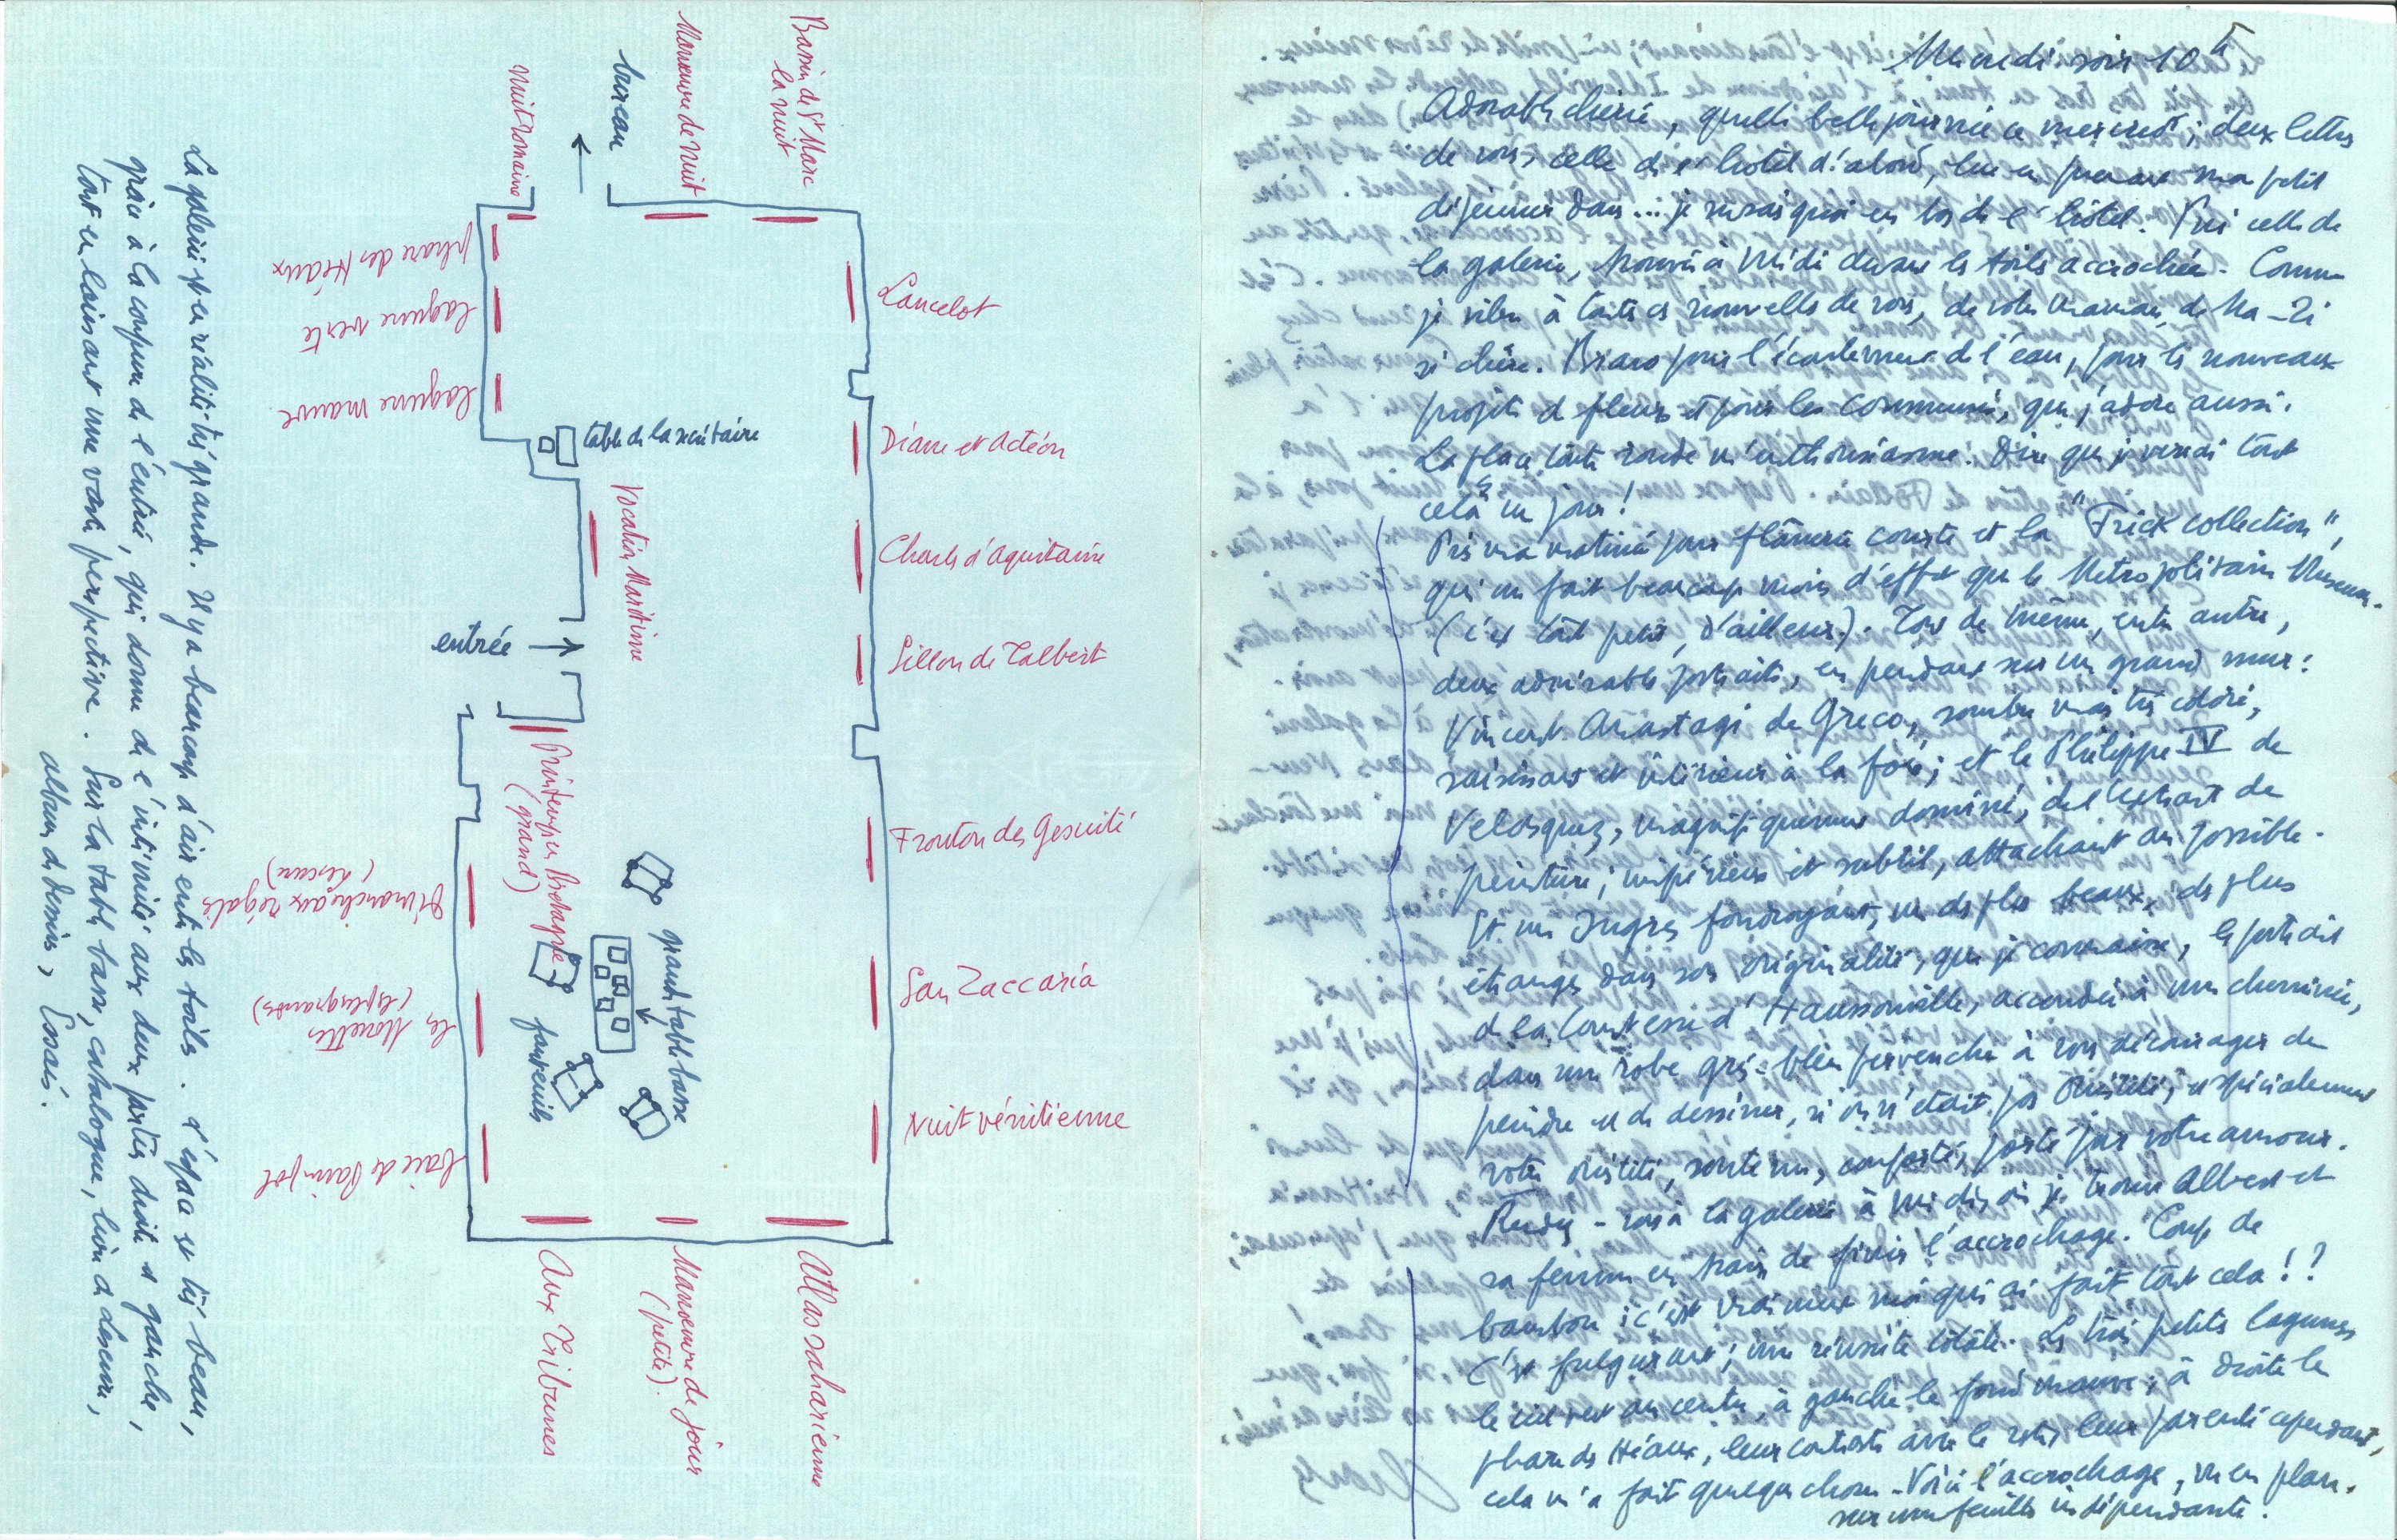 Bassin de St Marc
la nuit
Manœuvre de nuit
bureau
Nuit romaine
phare des Héaux
lagune verte
lagune mauve
table de la secrétaire
Vocation Maritime
entrée
Printemps en Bretagne
(grand)
Dimanche aux régates
(Lescure)
les Mouettes
(les plus grands)
baie de Paimpol
grande table basse
fauteuils
Lancelot
Diane et Actéon
Charles d'Aquitaine
Sillon de Talbert
Fronton des Gesuiti
San Zaccaria
Nuit vénitienne
Aux Tribunes
Manœuvre de jour
(petite).
Atlas saharienne
La galerie est en réalité très grande. Il y a beaucoup d'air entre les toiles. L'espace est très beau,
grâce à la coupure de l'entrée, qui donne de l'intimité aux deux parties droite et gauche,
tout en laissant une vaste perspective. Sur la table basse, catalogue, livre de Lescure,
album de dessins, Essais.
Mercredi soir 10 h
Adorable chérie, quelle belle journée ce mercredi; deux lettres
de vous, celle de l'hôtel d'abord, lue en prenant mon petit
déjeuner dans... je ne sais quoi en bas de l'hôtel. Puis celle de
la galerie, trouvée à Midi devant les toiles accrochées. Comme
je vibre à toutes ces nouvelles de vous, de votre maman, de
si chère. Bravo pour l'écoulement de l'eau, pour les nouveaux
projets de fleurs et pour les que j'adore aussi.
La place toute ronde m'enthousiasme. Dire que je verrai tout
cela un jour!
Pris ma matinée pour flânerie courte et la "Frick collection",
qui me fait beaucoup moins d'effet que le Metropolitain Museum.
(c'est tout petit, d'ailleurs). Tout de même, entre autre,
deux admirables portraits, en pendant sur un grand mur:
Vincent Anastagi de Greco, sombre mais très coloré,
saisissant et intérieur à la fois; et le Philippe IV de
Velasquez, magnifiquement dominé, de l'extrait de
peinture; impérieux et subtil, attachant au possible.
Et un Ingres foudroyant, un des plus beaux, des plus
étranges dans son originalité, que je connaisse, le portrait
de la Comtesse d'Haussonville, accoudée à une cheminée,
dans une robe gris-bleu pervenche à vous décourager de
peindre et de dessiner, si on n'était pas Ouistiti, et spécialement
votre Ouistiti, soutenu, conforté, porté par votre amour.
Rendez-vous à la galerie à midi, où je trouve Albert et
sa femme en train de finir l'accrochage. Coup de
bambou: c'est vraiment moi qui ai fait tout cela!?
C'est fulgurant; une réussite totale. Les trois petites lagunes,
le ciel vert au centre, à gauche le fond mauve; à droite le
phare des Héaux, leur contraste avec le reste, leur parenté cependant,
cela m'a fait quelque chose. Voici l'accrochage, vu en plan.
sur une feuille indépendante.